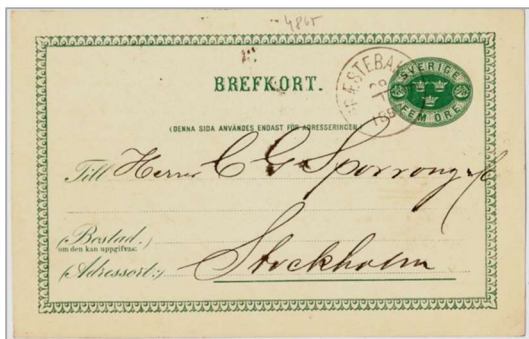 4865
BREFKORT.
SVERIGE
FEM ÖRE
(DENNA SIDA ANVÄNDES ENDAST FÖR ADRESSERINGEN.)
Till Herrar C G Sporrong & C
(Bostad.)
om den kan uppgifvas:
(Adressort:) Stockholm